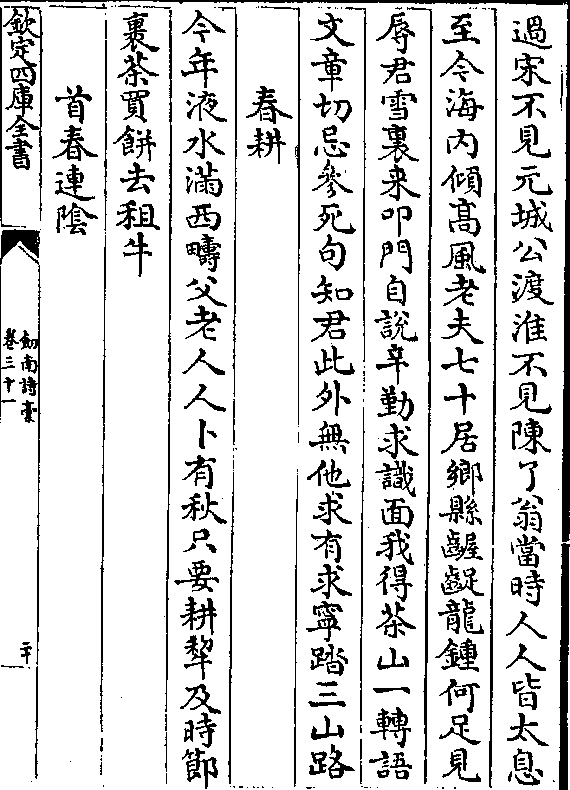 過宋不見元城公渡淮不見陳了翁當時人人皆太息
至今海内傾髙風老夫七十居鄉縣齷齪龍鍾何足見
辱君雪裏来叩門自說辛勤求識面我得茶山一轉語
文章切忌參死句知君此外無他求有求寧踏三山路
春耕
今年液水滿西疇父老人人卜有秋只要耕犂及時節
裹茶買餅去租牛
首春連隂
欽定四庫全書
劒南詩稾
卷三十一
二十